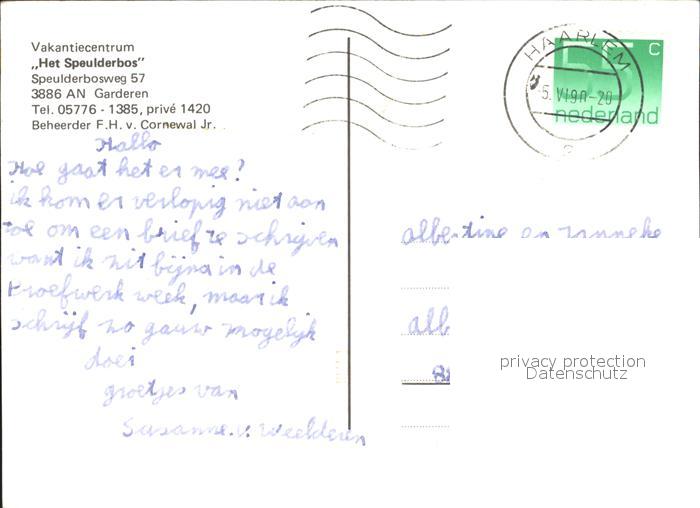 Vakantiecentrum
„Het Speulderbos”
Speulderbosweg 57
3886 AN Garderen
Tel. 05776 - 1385, privé 1420
Beheerder F.H. v. Cornewal Jr.
Hallo
Hoe gaat het er mee?
ik kom er verlopig niet aan
toe om een brief te schrijven
want ik zit bijna in de
proefwerk week, maar ik
schrijf zo gauw mogelijk
doei
groetjes van
Susanne v. Weelderen
HAARLEM
5.VI.90-20
55 c
nederland
albertine en
alb
privacy protection
Datenschutz